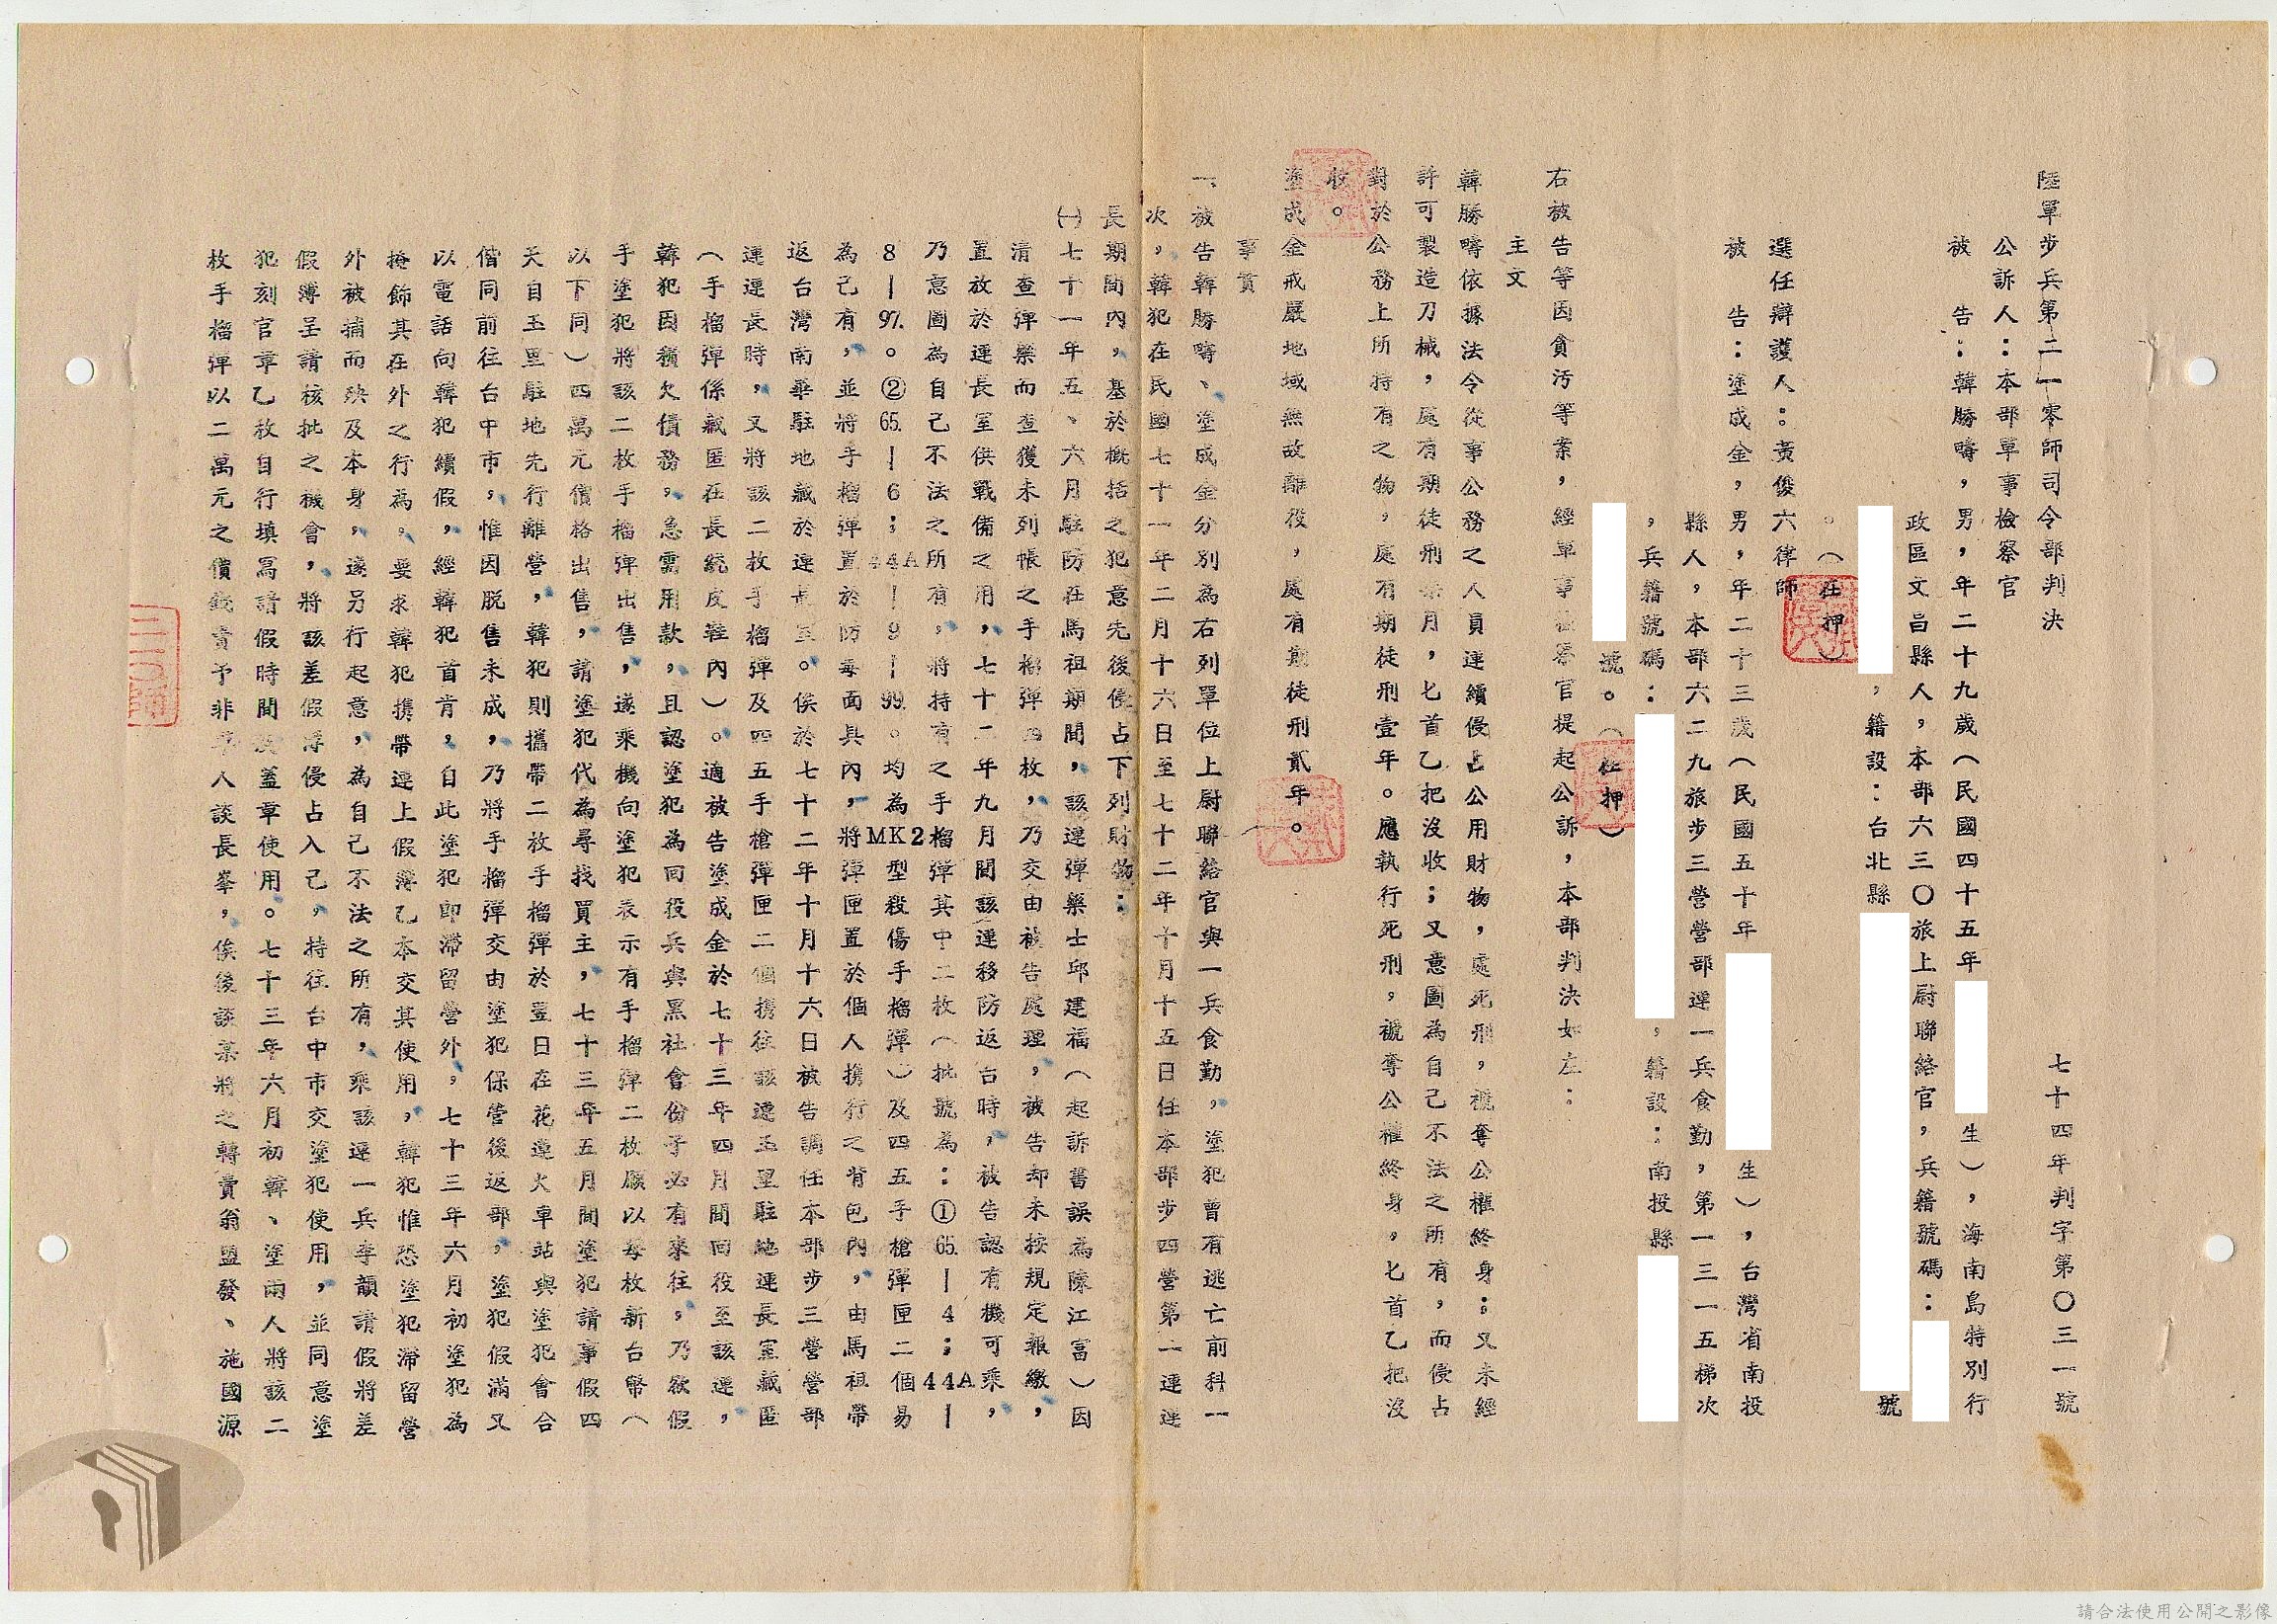 陸軍步兵第二一零師司令部判決
七十四年判字第〇三一號
公訴人：本部軍事檢察官
被告：韓勝疇，男，年二十九歲（民國四十五年 生），海南島特別行
政區文昌縣人，本部六三〇旅上尉聯絡官，兵籍號碼：
，籍設：台北縣 號
。（在押）
選任辯護人：黃俊六律師
被告：塗成金，男，年二十三歲（民國五十年 生），台灣省南投
縣人，本部六二九旅步三營營部連一兵食勤，第一三一五梯次
，兵籍號碼： ，籍設：南投縣
號。（在押）
右被告等因貪污等案，經軍事檢察官提起公訴，本部判決如左：
主文
韓勝疇依據法令從事公務之人員連續侵占公用財物，處死刑，褫奪公權終身；又未經
許可製造刀械，處有期徒刑 月，匕首乙把沒收；又意圖為自己不法之所有，而侵占
對於公務上所持有之物，處有期徒刑壹年。應執行死刑，褫奪公權終身，匕首乙把沒
收。
塗成金戒嚴地域無故離役，處有期徒刑貳年。
事實
一、被告韓勝疇、塗成金分別為右列單位上尉聯絡官與一兵食勤，塗犯曾有逃亡前科一
次，韓犯在民國七十一年二月十六日至七十二年十月十五日任本部步四營第二連連
長期間內，基於概括之犯意先後侵占下列財物：
㈠七十一年五、六月駐防在馬祖期間，該連彈藥士邱建福（起訴書誤為陳江富）因
清查彈藥而查獲未列帳之手榴彈四枚，乃交由被告處理，被告却未按規定報繳，
置放於連長室供戰備之用，七十二年九月間該連移防返台時，被告認有機可乘，
乃意圖為自己不法之所有，將持有之手榴彈其中二枚（批號為：①65.—4；44A—
8—97。②65.—6；44A—9—99。均為MK2型殺傷手榴彈）及四五手槍彈匣二個易
為己有，並將手榴彈置於防毒面具內，將彈匣置於個人攜行之背包內，由馬祖帶
返台灣南華駐地藏於連長室。俟於七十二年十月十六日被告調任本部步三營營部
連連長時，又將該二枚手榴彈及四五手槍彈匣二個攜往該連玉里駐地連長室藏匿
（手榴彈係藏匿在長統皮鞋內）。適被告塗成金於七十三年四月間回役至該連，
韓犯因積欠債務，急需用款，且認塗犯為回役兵與黑社會份子必有來往，乃欲假
手塗犯將該二枚手榴彈出售，遂乘機向塗犯表示有手榴彈二枚願以每枚新台幣（
以下同）四萬元價格出售，請塗犯代為尋找買主，七十三年五月間塗犯請事假四
天自玉里駐地先行離營，韓犯則攜帶二枚手榴彈於翌日在花蓮火車站與塗犯會合
偕同前往台中市，惟因脫售未成，乃將手榴彈交由塗犯保管後返部，塗犯假滿又
以電話向韓犯續假，經韓犯首肯，自此塗犯即滯留營外，七十三年六月初塗犯為
掩飾其在外之行為，要求韓犯攜帶連上假簿乙本交其使用，韓犯惟恐塗犯滯留營
外被捕而殃及本身，遂另行起意，為自己不法之所有，乘該連一兵李韻請假將差
假簿呈請核批之機會，將該差假簿侵占入己，持往台中市交塗犯使用，並同意塗
犯刻官章乙枚自行填寫請假時間 蓋章使用。七十三年六月初韓、塗兩人將該二
枚手榴彈以二萬元之價錢賣予非軍人談長峯，俟後談某將之轉賣翁盟發、施國源
請合法使用公開之影像